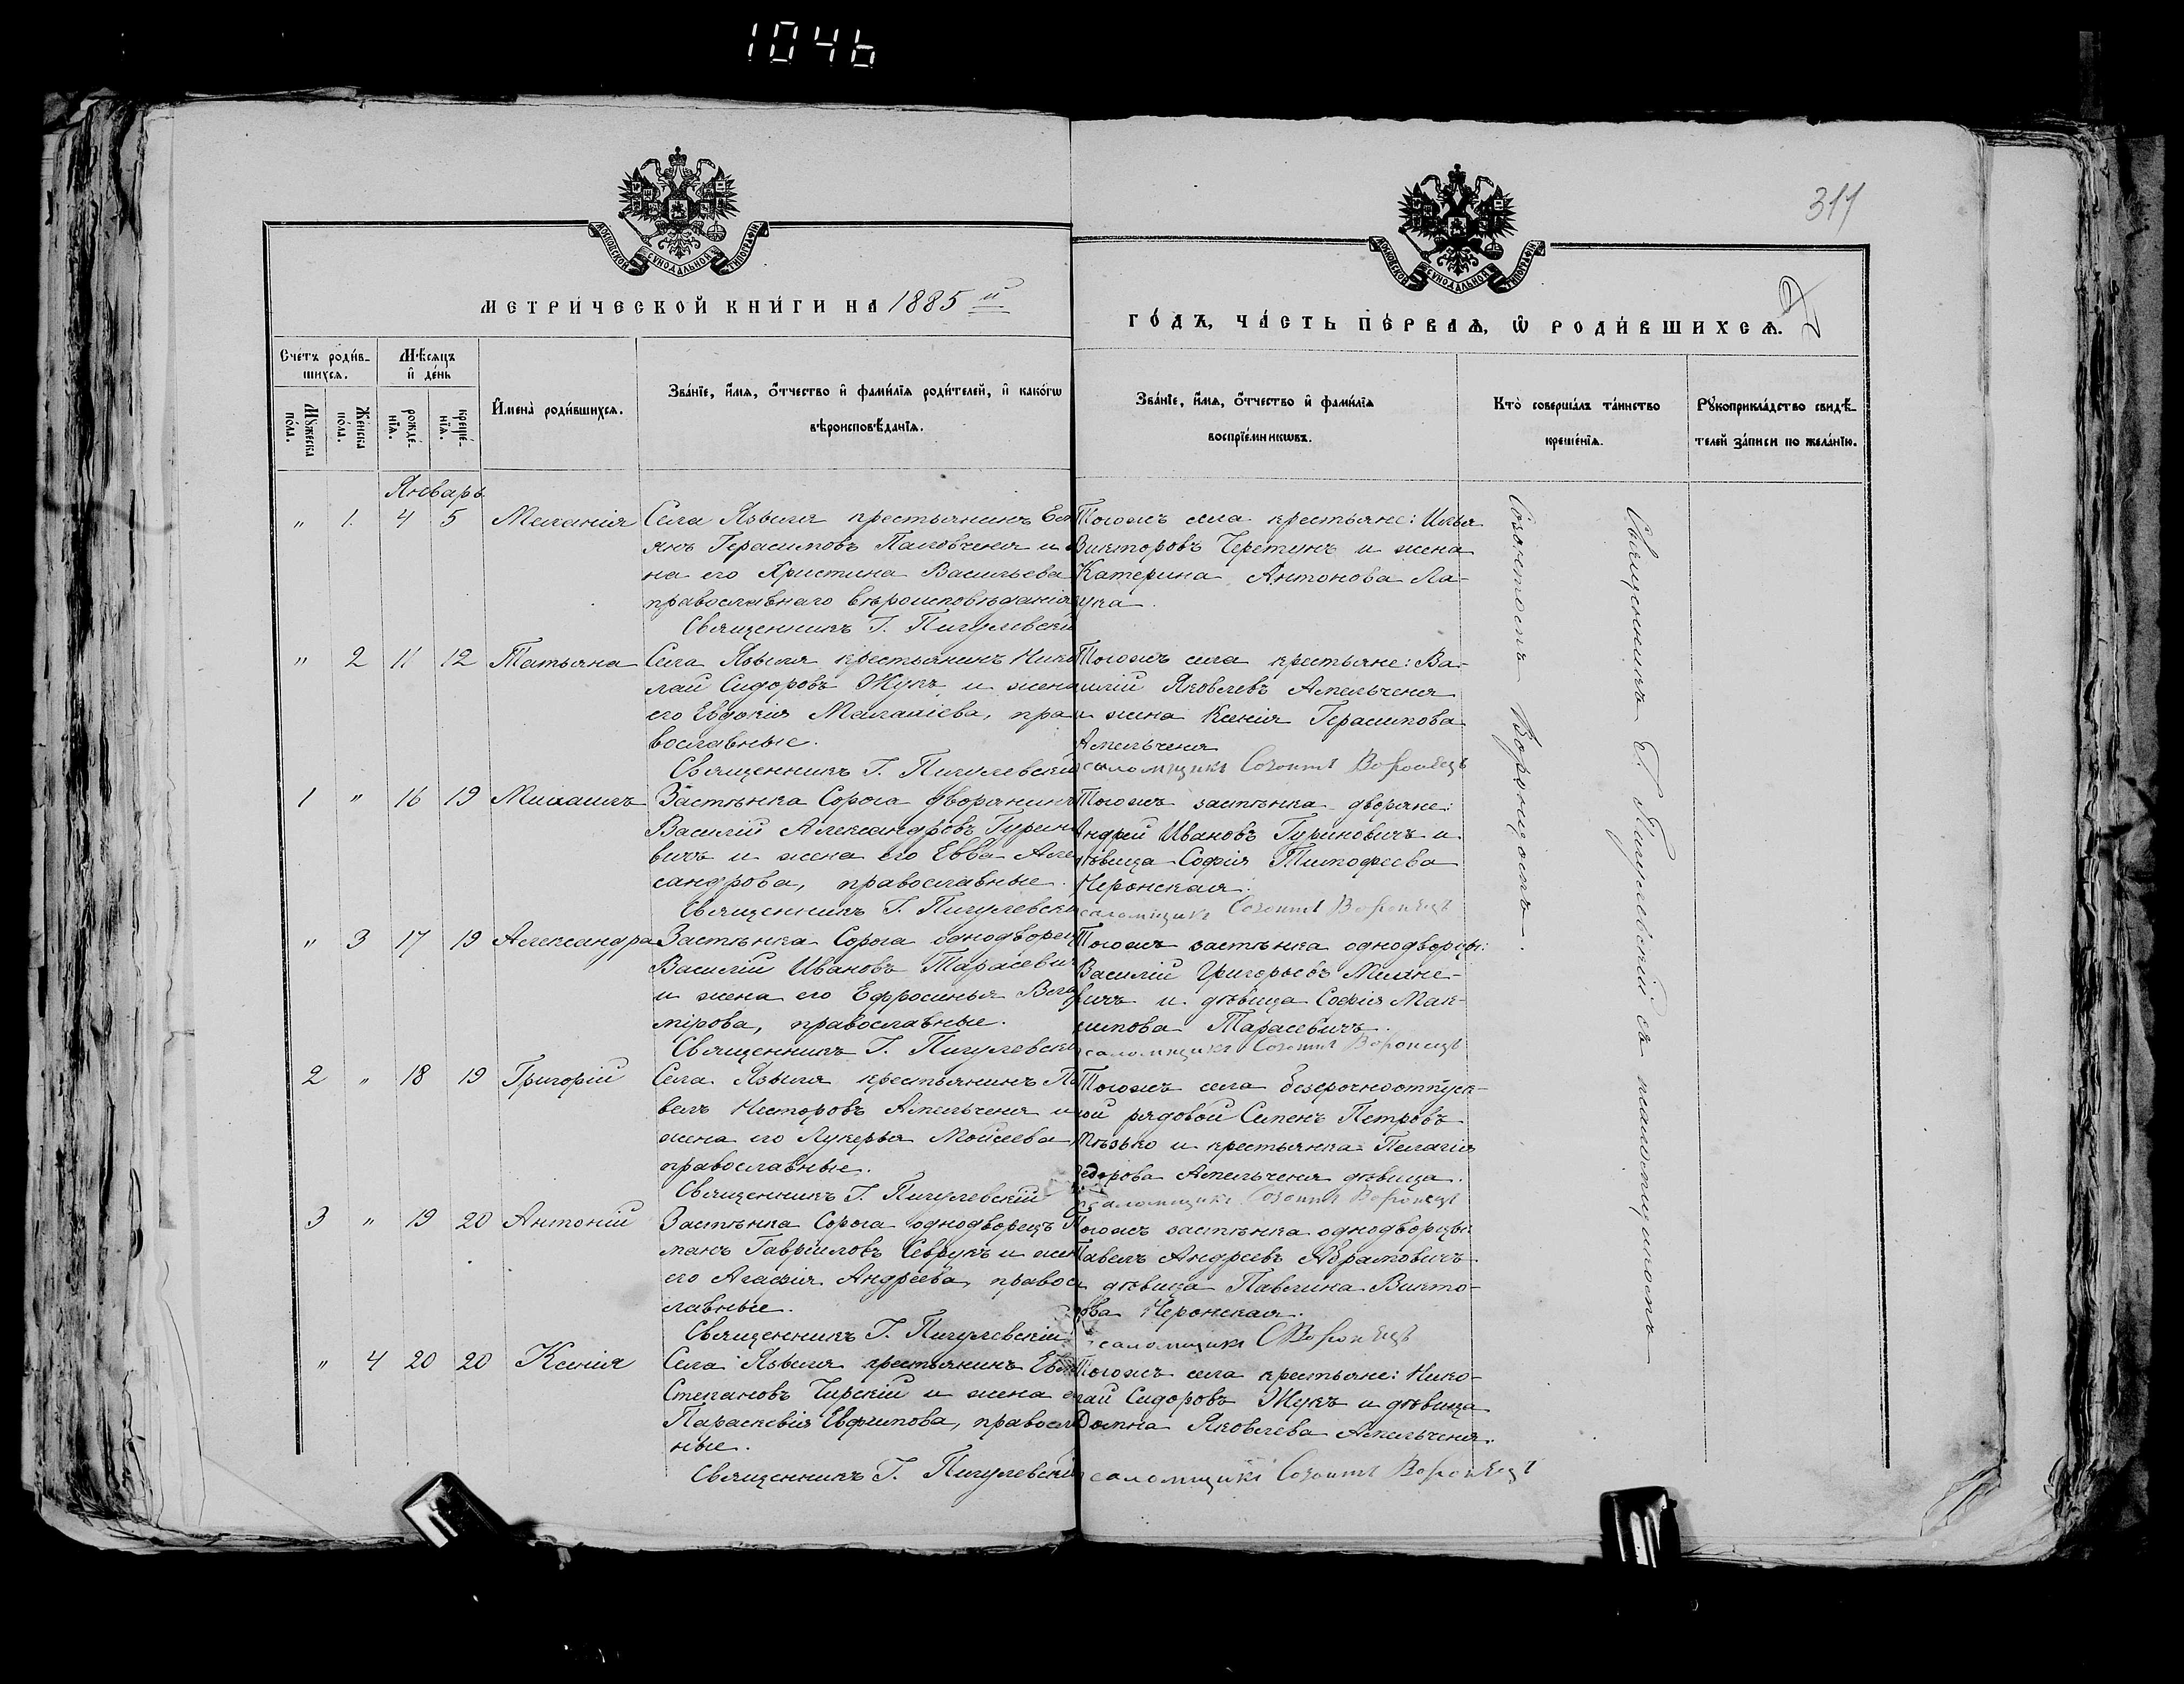 1046
311
МОСКОВСКОЙ СѴНОДАЛЬНОЙ ТИПОГРАФІИ
МОСКОВСКОЙ СѴНОДАЛЬНОЙ ТИПОГРАФІИ
МЕТРИ́ЧЕСКОЙ КНИ́ГИ НА 1885 й
ГО́ДЪ, ЧА́СТЬ ПЕ́РВАѦ, Ѿ РОДИ́ВШИХСѦ.
Сче́тъ роди́в-
шихсѧ.
Мѣ́сяцъ
и҆ де́нь
Мꙋ́жеска
по́ла.
Же́нска
по́ла.
рожде́-
нїѧ.
креще́-
нїѧ.
И҆мена̀ роди́вшихсѧ.
Зва́нїе, и҆́мѧ, ѻ҆́тчество и҆ фами́лїѧ роди́телей, и҆ како́гѡ
вѣроисповѣ́данїѧ.
Зва́нїе, и҆́мѧ, ѻ҆́тчество и҆ фами́лїѧ
воспрїе́мникѡвъ.
Кто̀ соверша́лъ та́инство
креще́нїѧ.
Рꙋкоприкла́дство свидѣ́-
телей за́писи по жела́нїю.
Январь
" 1. 4 5 Меланія Села Язвиля крестьянинъ
янъ Герасимовъ Паловченя и
на его Христина Васильева
православнаго вѣроисповѣданія
Священникъ Г. Пигулевскі
Тогожъ села крестьяне: Илья
Викторовъ Черетунъ и жена
Катерина Антонова Ла-
" 2 11 12 Татьяна Села Язвиля крестьянинъ Нико
лай Сидоровъ Жукъ и жена
его Евдокія Малахіева, пра
вославные.
Священникъ Г. Пигулевскій
Тогожъ села крестьяне: Ва-
силій Яковлевъ Амельченя
и жена Ксенія Герасимова
Амельченя
саломщикъ Созонтъ Воронецъ
1 " 16 19 Михаилъ Застѣнка Сорога дворянинъ
Василій Александровъ Гурин
вичъ и жена его Евва Але
сандрова, православные.
Священникъ Г. Пигулевскі
Тогожъ застѣнка дворяне:
Андрей Ивановъ Гуриновичъ и
дѣвица Софія Тимофеева
Черонская.
саломщикъ Созонтъ Воронецъ
" 3 17 19 Александра Застѣнка Сорога однодворец
Василій Ивановъ Тарасевич
и жена его Ефросинья
мірова, православные.
Священникъ Г. Пигулевскі
Тогожъ застѣнка однодворцы:
Василій Григорьевъ Михне-
вичъ и дѣвица Софія Мак-
симова Тарасевичъ.
саломщикъ Созонтъ Воронецъ
2 " 18 19 Григорій Села Язвиля крестьянинъ Па
велъ Несторовъ Амельченя и
жена его Лукерья Мойсеева,
православные.
Священникъ Г. Пигулевскій
Тогожъ села безсрочноотпуск-
ной рядовой Сименъ Петровъ
и крестьянка Пелагія
Федорова Амельченя дѣвица.
саломщикъ Созонтъ Воронецъ
3 " 19 20 Антоній Застѣнка Сорога однодворецъ
манъ Гавриловъ Севрукъ и жен
его Агафія Андреева, правос
лавные.
Священникъ Г. Пигулевскій
Тогожъ застѣнка однодворцы:
Павелъ Андреевъ Абрамовичъ
и дѣвица Павлина Викто-
рова Черонская.
саломщикъ С Воронецъ
" 4 20 20 Ксенія Села Язвиля крестьянинъ
Степановъ Чирскій и жена е
Параскевія Евфимова, правосла
ные.
Священникъ Г. Пигулевскій
Тогожъ села крестьяне: Нико-
лай Сидоровъ Жукъ и дѣвица
Домна Яковлева Амельченя.
саломщикъ Созонтъ Воронецъ
Священникъ Г. Пигулевскій съ псаломщикомъ
Созонтомъ Воронецомъ.